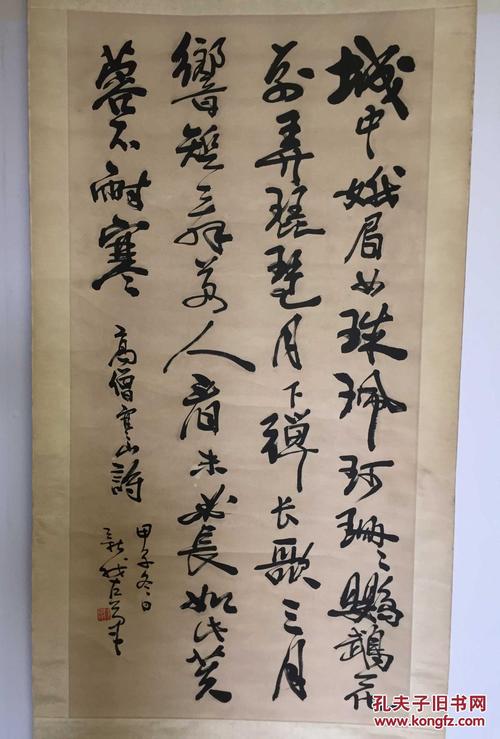 城中娥眉女珠珮珂珊々鸚鵡花
前弄琵琶月下彈长歌三月
響短舞万人看未必長如此芙
蓉不耐寒 高僧寒山詩
甲子冬日
新我左筆
孔夫子旧书网
www.kongfz.com